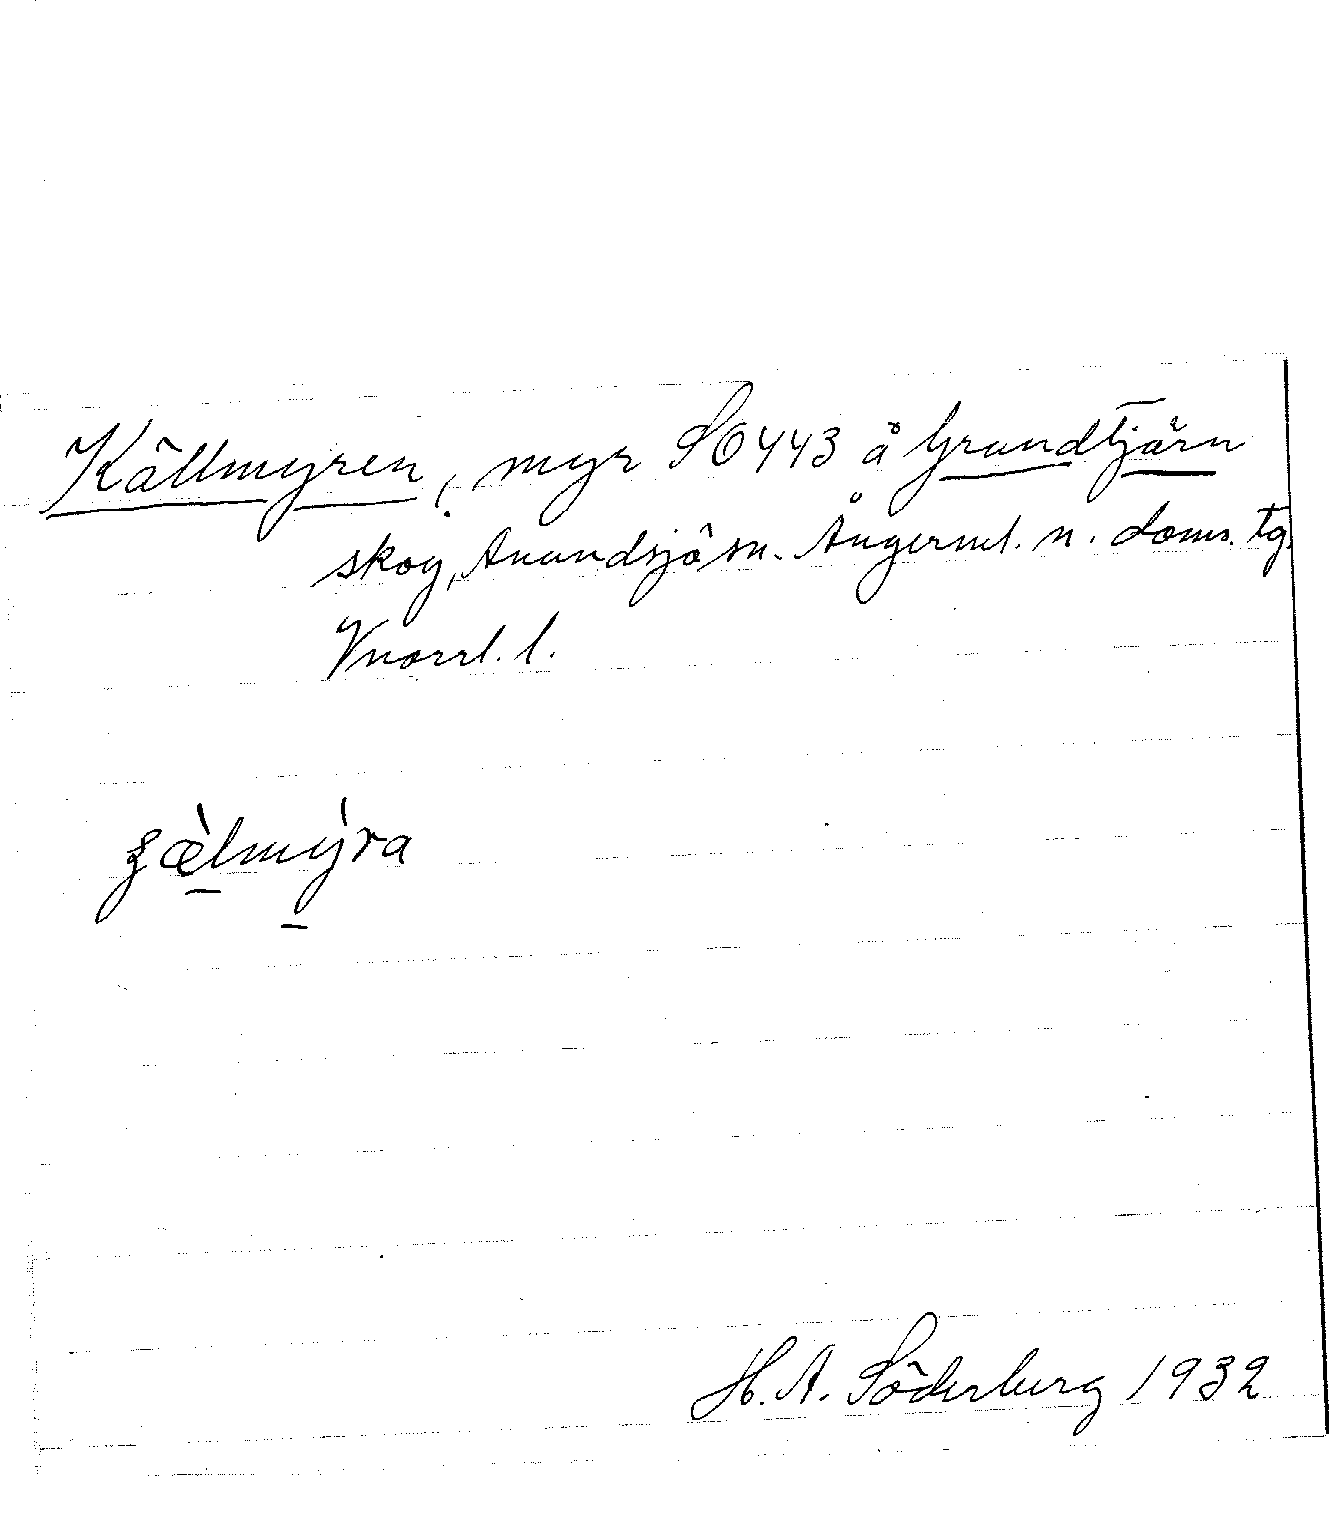 Källmyren, myr SO 443 å Grundtjärn
skog, Anundsjö sn. Ångerml. n. doms. tg.
Vnorrl. l.
gæ̀lmýra
H. A. Söderberg 1932